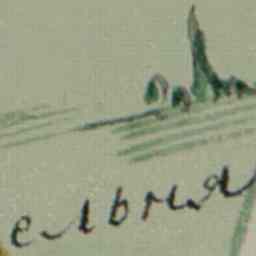 ельня